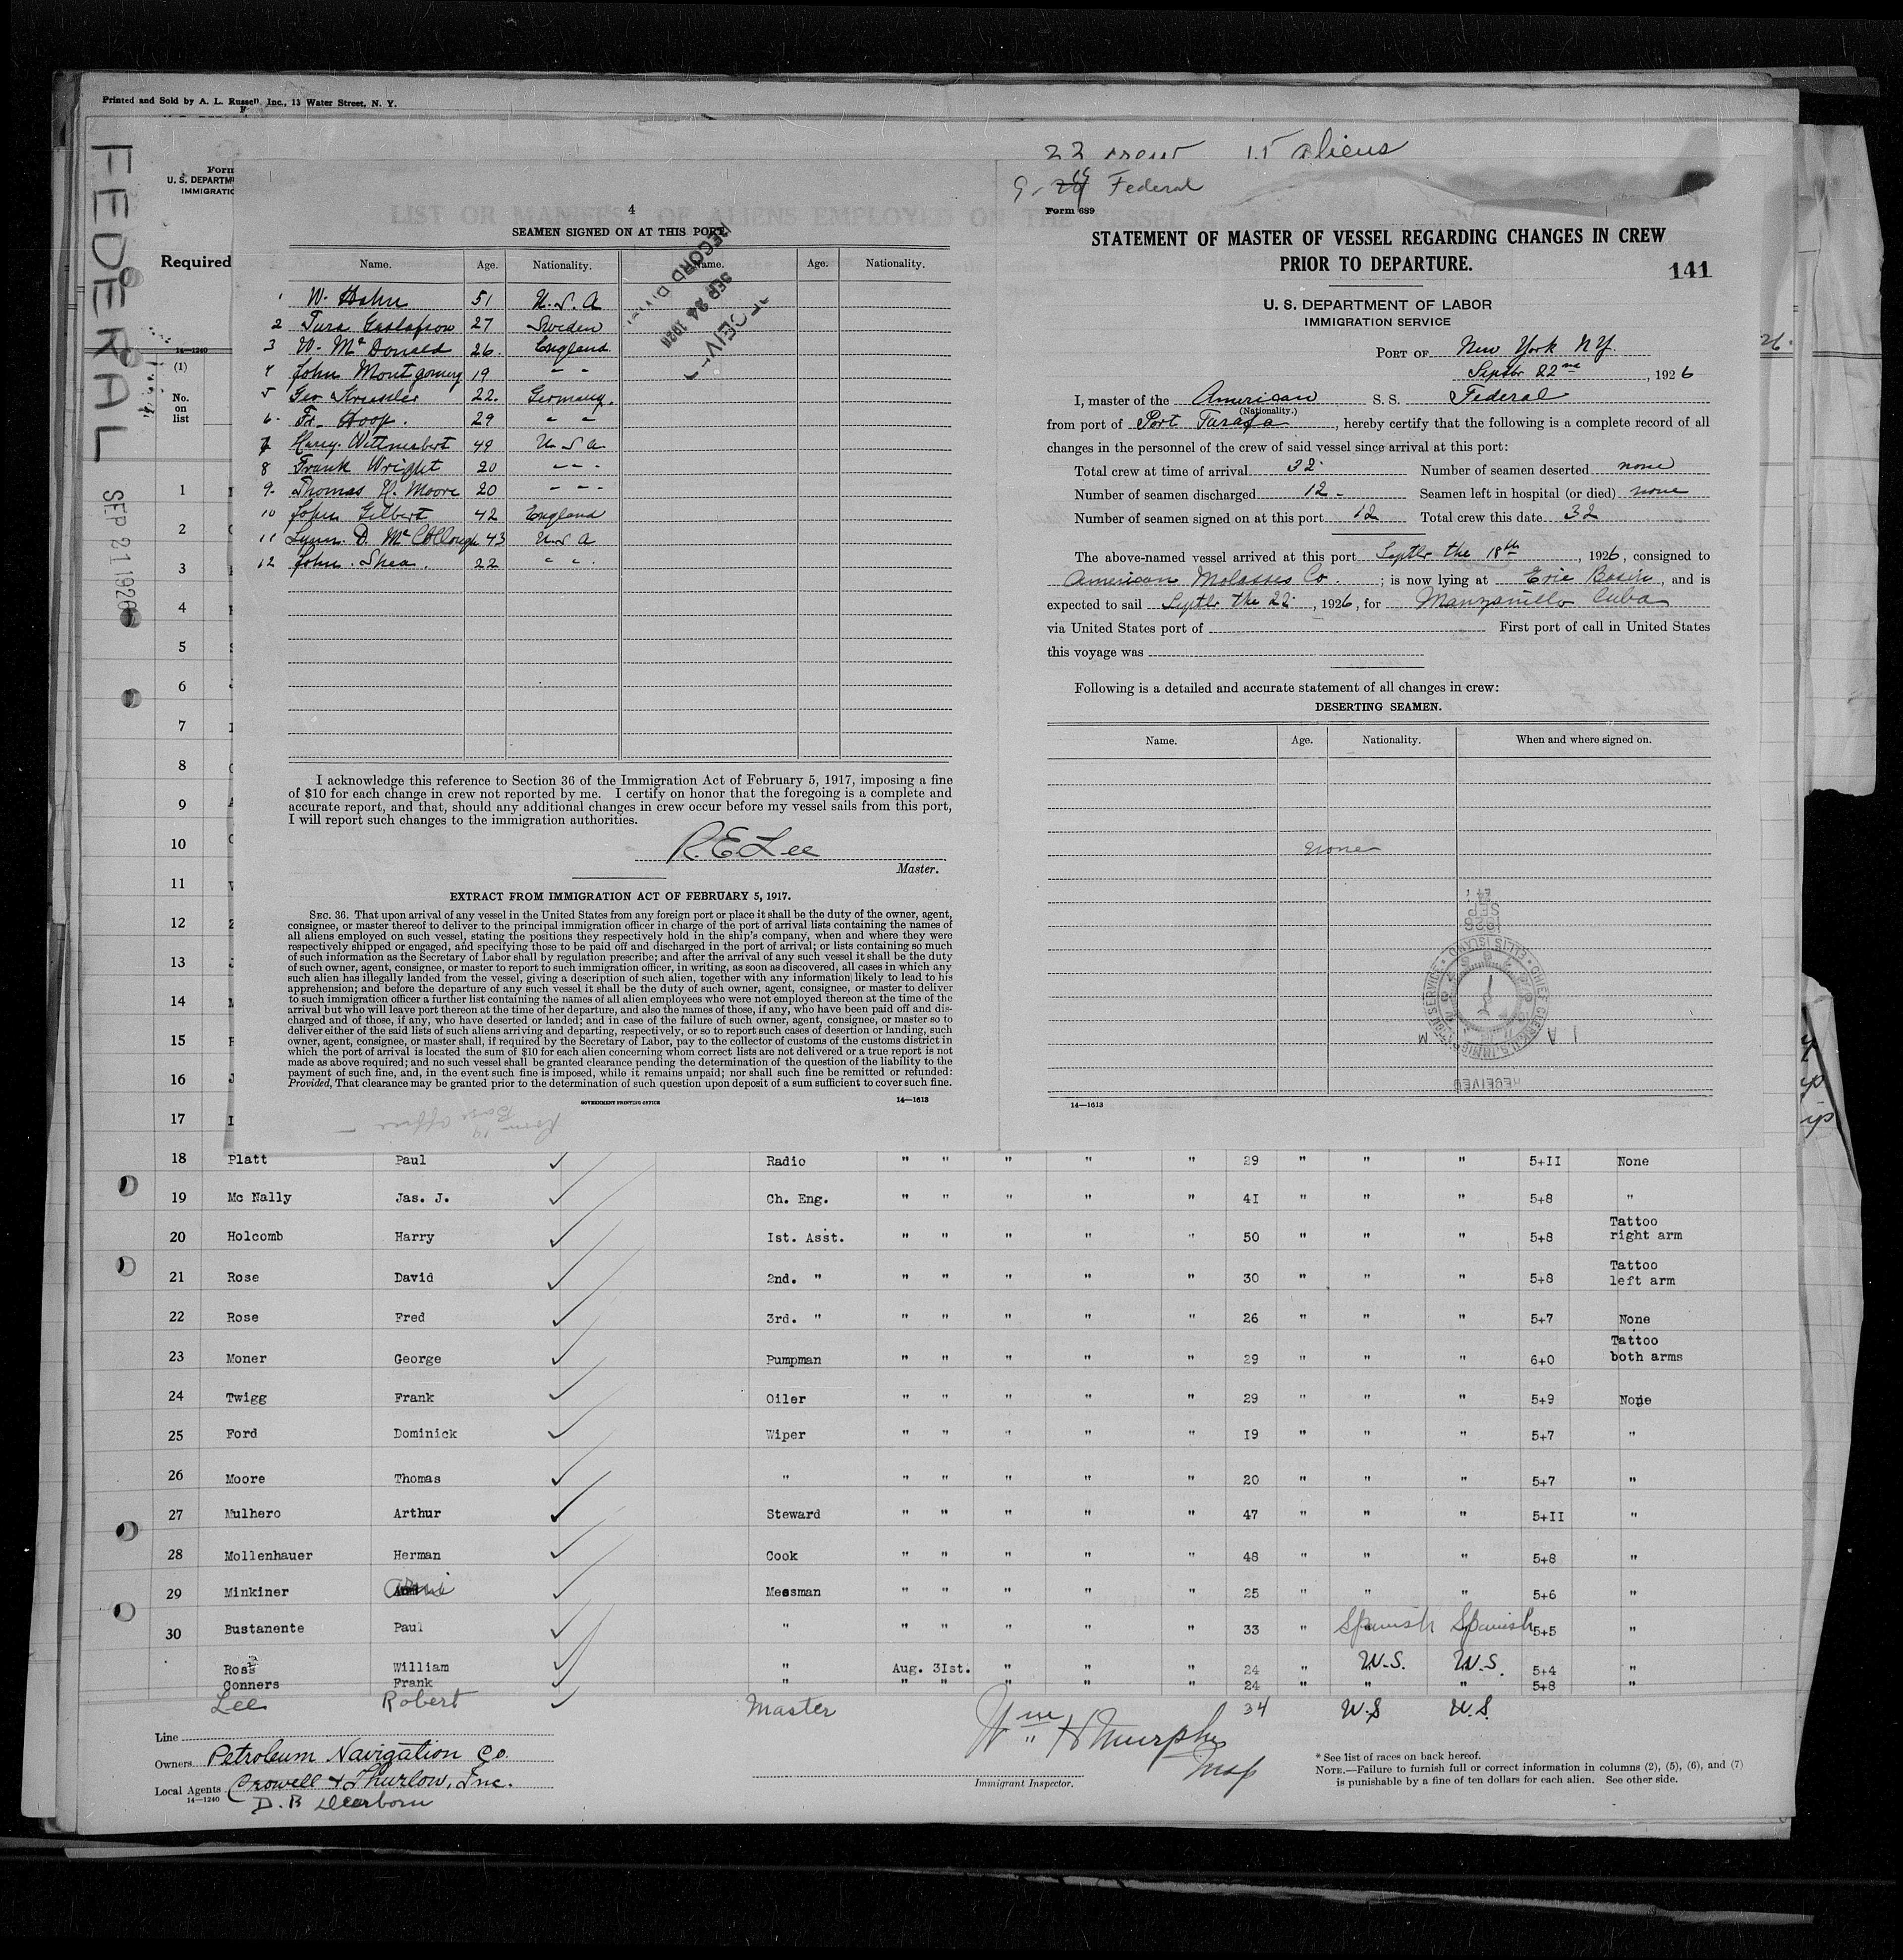 Printed and Sold by A. L. Russell, Inc., 13 Water Street, N. Y.
FEDERAL
SEP 21 1926
Form
U. S. DEPARTM
IMMIGRATIO
Required
14—1240
(1)
No.
on
list
1
2
3
4
5
6
7
8
9
10
11
12
13
14
15
16
17
LIST OR MANIFEST OF ALIENS EMPLOYED ON THE VESSEL A
4
SEAMEN SIGNED ON AT THIS PORT.
Name. Age. Nationality. Name. Age. Nationality.
1 W. Hahn 51 U.S.A
2 Ture Gustafson 27 Sweden
3 W. McDonald 26. England
4 John Montgomery 19 " "
5 Geo Kressler 22. Germany.
6. Fr. Hoop. 29 " "
7 Harry Wittmebert 49 U S A
8 Frank Wright 20 " " "
9. Thomas H. Moore 20 " " "
10 John Gilbert 42 England
11 Lynn. D. McCollough 43 U S A
12 John. Shea. 22 " " .
RECEIV
SEP 24 1926
RECORD DIVI
I acknowledge this reference to Section 36 of the Immigration Act of February 5, 1917, imposing a fine
of $10 for each change in crew not reported by me. I certify on honor that the foregoing is a complete and
accurate report, and that, should any additional changes in crew occur before my vessel sails from this port,
I will report such changes to the immigration authorities.
R. E. Lee
Master.
EXTRACT FROM IMMIGRATION ACT OF FEBRUARY 5, 1917.
SEC. 36. That upon arrival of any vessel in the United States from any foreign port or place it shall be the duty of the owner, agent,
consignee, or master thereof to deliver to the principal immigration officer in charge of the port of arrival lists containing the names of
all aliens employed on such vessel, stating the positions they respectively hold in the ship's company, when and where they were
respectively shipped or engaged, and specifying those to be paid off and discharged in the port of arrival; or lists containing so much
of such information as the Secretary of Labor shall by regulation prescribe; and after the arrival of any such vessel it shall be the duty
of such owner, agent, consignee, or master to report to such immigration officer, in writing, as soon as discovered, all cases in which any
such alien has illegally landed from the vessel, giving a description of such alien, together with any information likely to lead to his
apprehension; and before the departure of any such vessel it shall be the duty of such owner, agent, consignee, or master to deliver
to such immigration officer a further list containing the names of all alien employees who were not employed thereon at the time of the
arrival but who will leave port thereon at the time of her departure, and also the names of those, if any, who have been paid off and dis-
charged and of those, if any, who have deserted or landed; and in case of the failure of such owner, agent, consignee, or master so to
deliver either of the said lists of such aliens arriving and departing, respectively, or so to report such cases of desertion or landing, such
owner, agent, consignee, or master shall, if required by the Secretary of Labor, pay to the collector of customs of the customs district in
which the port of arrival is located the sum of $10 for each alien concerning whom correct lists are not delivered or a true report is not
made as above required; and no such vessel shall be granted clearance pending the determination of the question of the liability to the
payment of such fine, and, in the event such fine is imposed, while it remains unpaid; nor shall such fine be remitted or refunded:
Provided, That clearance may be granted prior to the determination of such question upon deposit of a sum sufficient to cover such fine.
GOVERNMENT PRINTING OFFICE 14—1613
22 crew 15 aliens
Federal
Form 689
STATEMENT OF MASTER OF VESSEL REGARDING CHANGES IN CREW
PRIOR TO DEPARTURE.
141
U. S. DEPARTMENT OF LABOR
IMMIGRATION SERVICE
PORT OF New York NY.
Septbr 22nd, 1926
I, master of the American S. S. Federal
(Nationality.)
from port of Port Tarafa, hereby certify that the following is a complete record of all
changes in the personnel of the crew of said vessel since arrival at this port:
Total crew at time of arrival 32 Number of seamen deserted none
Number of seamen discharged 12 Seamen left in hospital (or died) none
Number of seamen signed on at this port 12 Total crew this date 32
The above-named vessel arrived at this port Septbr the 18th, 1926, consigned to
American Molasses Co.; is now lying at Erie Basin, and is
expected to sail Septbr the 22, 1926, for Manzanillo Cuba
via United States port of First port of call in United States
this voyage was
Following is a detailed and accurate statement of all changes in crew:
DESERTING SEAMEN.
Name. Age. Nationality. When and where signed on.
none
1926
SEP
24
RECEIVED
14—1613
18 Platt Paul Radio " " " " " 29 " " " 5+II None
19 Mc Nally Jas. J. Ch. Eng. " " " " " 4I " " " 5+8 "
20 Holcomb Harry Ist. Asst. " " " " " 50 " " " 5+8 Tattoo right arm
21 Rose David 2nd. " " " " " " 30 " " " 5+8 Tattoo left arm
22 Rose Fred 3rd. " " " " " " 26 " " " 5+7 None
23 Moner George Pumpman " " " " " 29 " " " 6+0 Tattoo both arms
24 Twigg Frank Oiler " " " " " 29 " " " 5+9 None
25 Ford Dominick Wiper " " " " " I9 " " " 5+7 "
26 Moore Thomas " " " " " " 20 " " " 5+7 "
27 Mulhero Arthur Steward " " " " " 47 " " " 5+II "
28 Mollenhauer Herman Cook " " " " " 48 " " " 5+8 "
29 Minkiner Messman " " " " " 25 " " " 5+6 "
30 Bustanente Paul " " " " " " 33 " Spanish Spanish 5+5 "
Ross William " Aug. 3Ist. " " " 24 " U.S. U.S. 5+4 "
Conners Frank " " " " " " 24 " " " 5+8 "
Lee Robert Master 34 U.S U.S.
Line
Owners Petroleum Navigation Co.
Local Agents Crowell & Thurlow, Inc.
14—1240
D. B Dearborn
Wm H Murphy
Insp
Immigrant Inspector.
* See list of races on back hereof.
NOTE.—Failure to furnish full or correct information in columns (2), (5), (6), and (7)
is punishable by a fine of ten dollars for each alien. See other side.